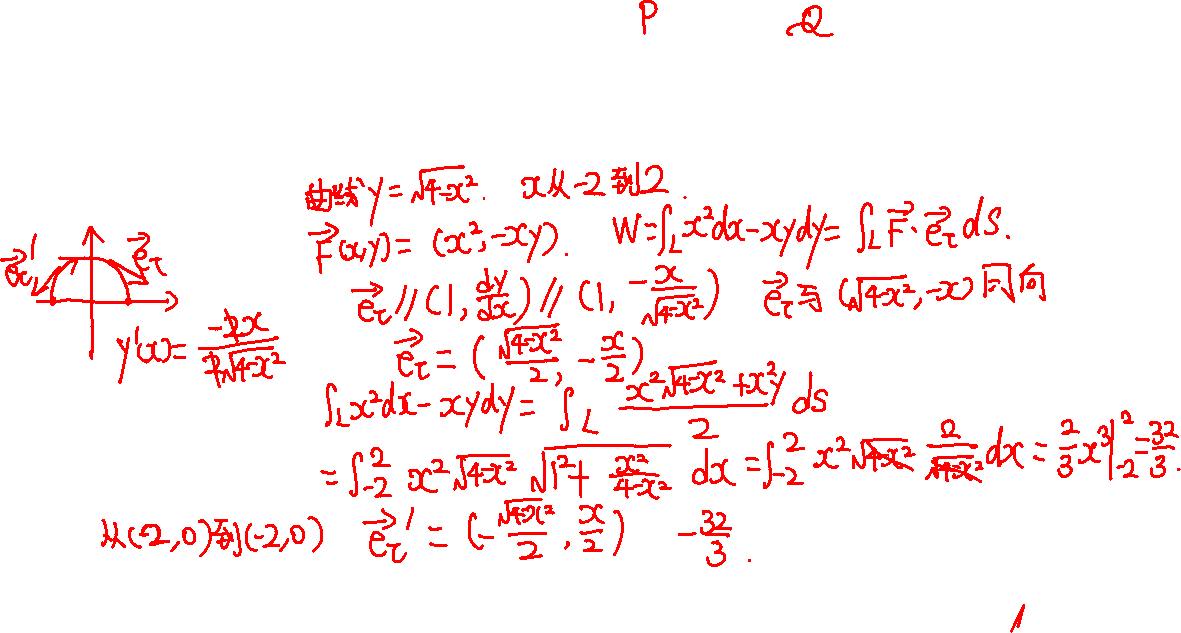 P Q
曲线 y = √(4-x²). x从-2到2.
F⃗(x,y) = (x², -xy). W = ∫_L x²dx - xydy = ∫_L F⃗·e⃗_τ ds.
e⃗_τ' e⃗_τ
e⃗_τ // (1, dy/dx) // (1, -x/√(4-x²)) e⃗_τ与(√(4-x²), -x)同向
y'(x) = -2x/(2√(4-x²)) e⃗_τ = (√(4-x²)/2, -x/2)
∫_L x²dx - xydy = ∫_L (x²√(4-x²) + x²y)/2 ds
= ∫_{-2}^{2} x²√(4-x²) √(1² + x²/(4-x²)) dx = ∫_{-2}^{2} x²√(4-x²) 2/√(4-x²) dx = 2/3 x³|_{-2}^{2} = 32/3.
从(-2,0)到(-2,0) e⃗_τ' = (-√(4-x²)/2, x/2) -32/3.